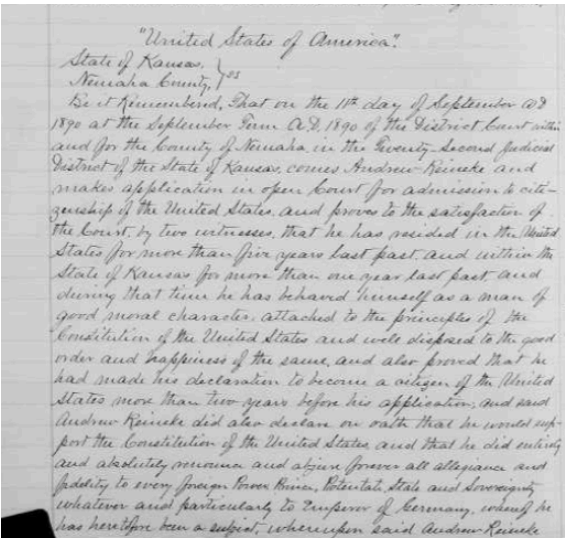 "United States of America".
State of Kansas,
Nemaha County, } ss
Be it Remembered, That on the 11th day of September A.D
1890 at the September Term A.D. 1890 of the District Court within
and for the County of Nemaha, in the Twenty-Second Judicial
District of the State of Kansas, comes Andrew Reineke and
makes application in open Court for admission to citi-
zenship of the United States, and proves to the satisfaction of
the Court, by two witnesses, that he has resided in the United
States for more than five years last past, and within the
State of Kansas for more than one year last past, and
during that time he has behaved himself as a man of
good moral character, attached to the principles of the
Constitution of the United States and well disposed to the good
order and happiness of the same, and also proved that he
had made his declaration to become a citizen of the United
States more than two years before his application, and said
Andrew Reineke did also declare on oath that he would sup-
port the Constitution of the United States, and that he did entirely
and absolutely renounce and abjure forever all allegiance and
fidelity to every foreign Power Prince, Potentate, State and Sovereignty
whatever and particularly to Emperor of Germany, whereof he
has heretofore been a subject, whereupon said Andrew Reineke